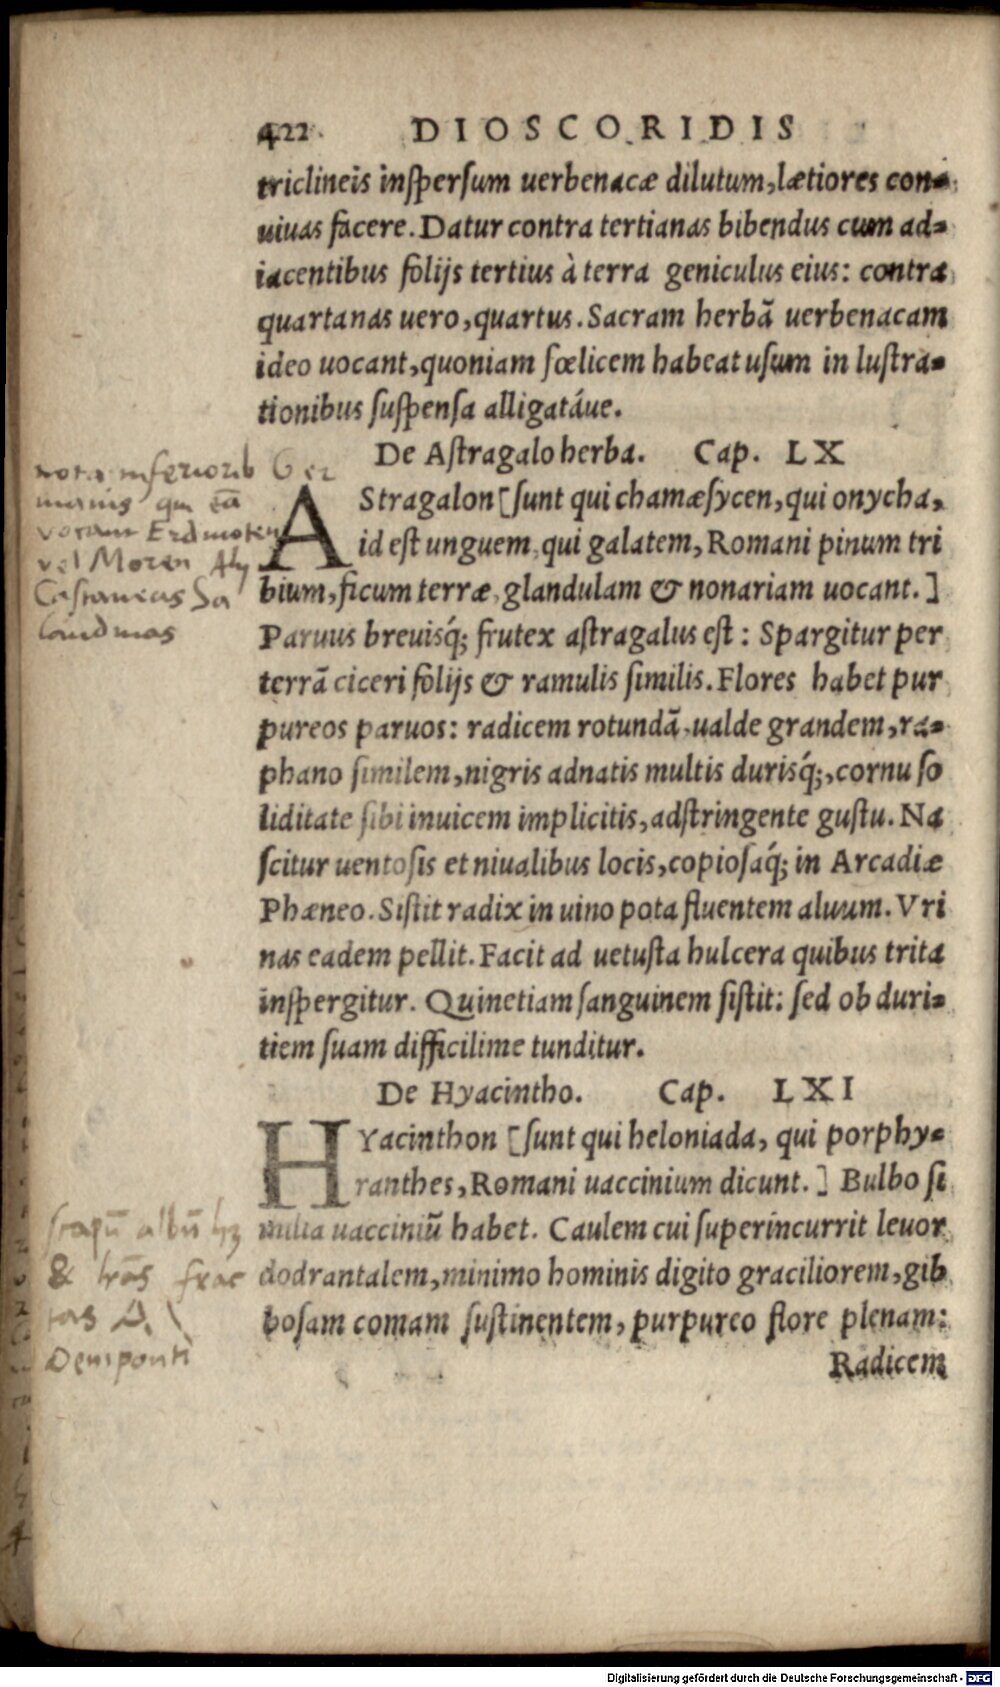 422 DIOSCORIDIS
triclineis inspersum uerbenacæ dilutum, lætiores con-
uiuas facere. Datur contra tertianas bibendus cum ad-
iacentibus folijs tertius à terra geniculus eius: contra
quartanas uero, quartus. Sacram herbā uerbenacam
ideo uocant, quoniam fœlicem habeat usum in lustra-
tionibus suspensa alligatáue.
De Astragalo herba. Cap. LX
AStragalon [sunt qui chamæsycen, qui onycha,
id est unguem, qui galatem, Romani pinum tri
bium, ficum terræ, glandulam & nonariam uocant.]
Paruus breuisq́; frutex astragalus est: Spargitur per
terrā ciceri folijs & ramulis similis. Flores habet pur
pureos paruos: radicem rotundā, ualde grandem, ra-
phano similem, nigris adnatis multis durisq́;, cornu so
liditate sibi inuicem implicitis, adstringente gustu. Na
scitur uentosis et niualibus locis, copiosaq́; in Arcadiæ
Phæneo. Sistit radix in uino pota fluentem aluum. Vri
nas eadem pellit. Facit ad uetusta hulcera quibus trita
inspergitur. Quinetiam sanguinem sistit: sed ob duri-
tiem suam difficilime tunditur.
De Hyacintho. Cap. LXI
HYacinthon [sunt qui heloniada, qui porphy-
ranthes, Romani uaccinium dicunt.] Bulbo si
milia uacciniū habet. Caulem cui superincurrit leuor
dodrantalem, minimo hominis digito graciliorem, gib
bosam comam sustinentem, purpureo flore plenam:
Radicem
nota inferiorib Ger
manis qui
vocant Erdmoren
vel Moren Alij
Castaneas
albū
&
Digitalisierung gefördert durch die Deutsche Forschungsgemeinschaft - DFG